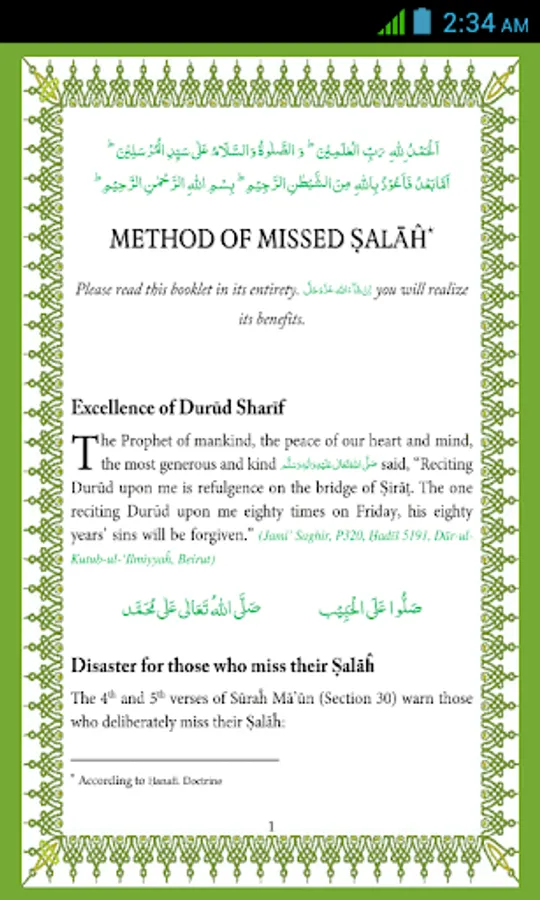 2:34 AM
اَلْحَمْدُ لِلّٰهِ رَبِّ الْعٰلَمِیْنَ ؕ وَ الصَّلٰوۃُ وَالسَّلَامُ عَلٰی سَیِّدِ الْمُرْسَلِیْنَ ؕ
اَمَّابَعْدُ فَاَعُوْذُ بِاللّٰهِ مِنَ الشَّیْطٰنِ الرَّجِیْمِ ؕ بِسْمِ اللّٰهِ الرَّحْمٰنِ الرَّحِیْمِ ؕ
METHOD OF MISSED ṢALĀĤ*
Please read this booklet in its entirety. اِنْ شَآءَاللّٰه عَزَّوَجَلَّ you will realize
its benefits.
Excellence of Durūd Sharīf
The Prophet of mankind, the peace of our heart and mind,
the most generous and kind صَلَّى اللهُ تَعَالٰى عَلَيْهِ وَاٰلِهٖ وَسَلَّم said, “Reciting
Durūd upon me is refulgence on the bridge of Ṣirāṭ. The one
reciting Durūd upon me eighty times on Friday, his eighty
years’ sins will be forgiven.” (Jami’ Saghir, P320, Ḥadīš 5191, Dār-ul-
Kutub-ul-‘Ilmiyyaĥ, Beirut)
صَلُّوا عَلَی الْحَبِیْب صَلَّی اللّٰهُ تَعَالٰی عَلٰی مُحَمَّد
Disaster for those who miss their Ṣalāĥ
The 4th and 5th verses of Sūraĥ Mā’ūn (Section 30) warn those
who deliberately miss their Ṣalāĥ:
* According to Ḥanafī Doctrine
1